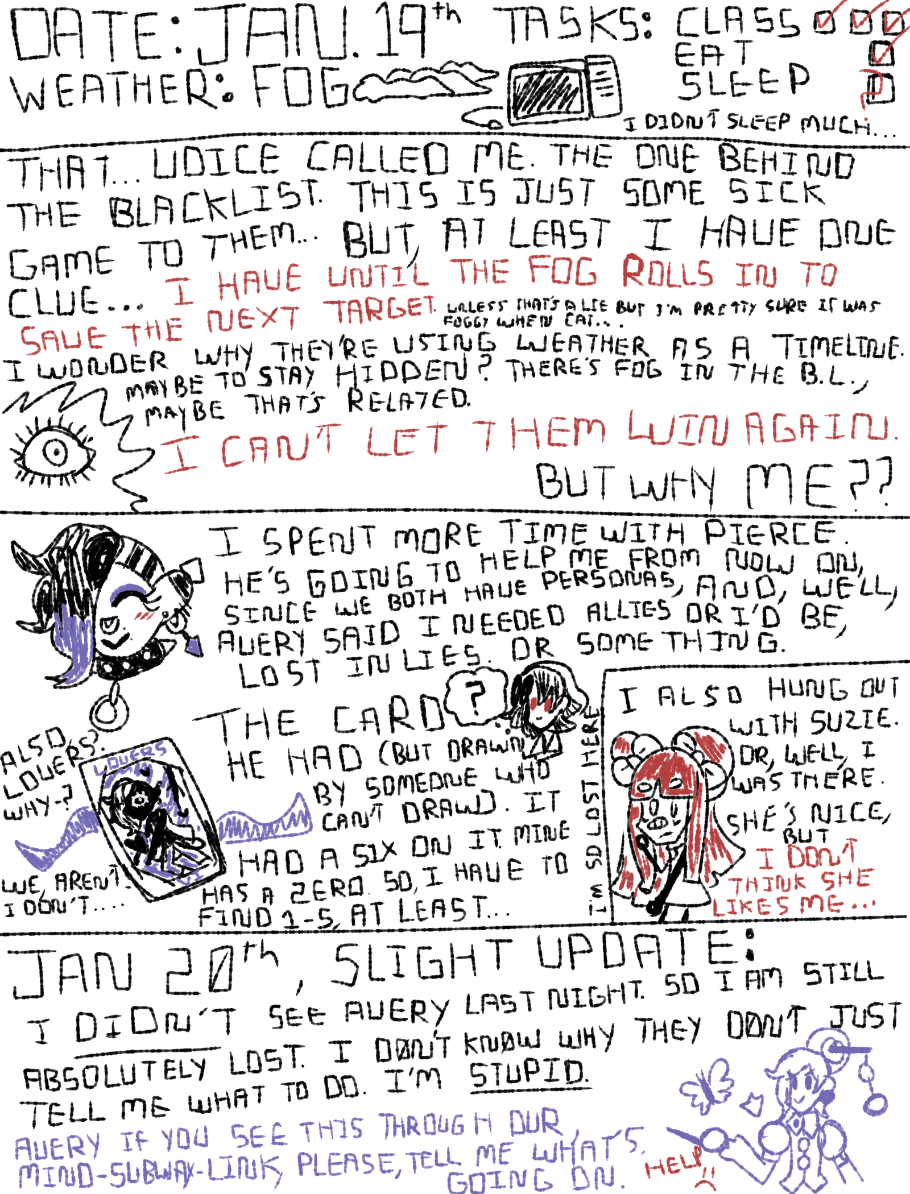 DATE: JAN. 19th
TASKS: CLASS
EAT
SLEEP
?
WEATHER: FOG
I DIDN'T SLEEP MUCH...
THAT... UDICE CALLED ME. THE ONE BEHIND
THE BLACKLIST. THIS IS JUST SOME SICK
GAME TO THEM... BUT, AT LEAST I HAVE ONE
CLUE... I HAVE UNTIL THE FOG ROLLS IN TO
SAVE THE NEXT TARGET. UNLESS THAT'S A LIE BUT I'M PRETTY SURE IT WAS
FOGGY WHEN CAT...
I WONDER WHY THEY'RE USING WEATHER AS A TIMELINE.
MAYBE TO STAY HIDDEN? THERE'S FOG IN THE B.L.,
MAYBE THAT'S RELATED.
I CAN'T LET THEM WIN AGAIN.
BUT WHY ME??
I SPENT MORE TIME WITH PIERCE.
HE'S GOING TO HELP ME FROM NOW ON,
SINCE WE BOTH HAVE PERSONAS, AND, WELL,
AVERY SAID I NEEDED ALLIES OR I'D BE,
LOST IN LIES, OR SOMETHING.
THE CARD
?
HE HAD (BUT DRAWN
BY SOMEONE WHO
CAN'T DRAW). IT
HAD A SIX ON IT. MINE
HAS A ZERO. SO, I HAVE TO
FIND 1-5, AT LEAST...
ALSO
LOVERS?
WHY-?
LOVERS
VI
WE, AREN'T.
I DON'T....
I'M SO LOST HERE
I ALSO HUNG OUT
WITH SUZIE.
OR, WELL, I
WAS THERE.
SHE'S NICE,
BUT
I DON'T
THINK SHE
LIKES ME...
JAN 20th, SLIGHT UPDATE:
I DIDN'T SEE AVERY LAST NIGHT. SO I AM STILL
ABSOLUTELY LOST. I DON'T KNOW WHY THEY DON'T JUST
TELL ME WHAT TO DO. I'M STUPID.
AVERY IF YOU SEE THIS THROUGH OUR,
MIND-SUBWAY-LINK, PLEASE, TELL ME WHAT'S
GOING ON.
HELP!!